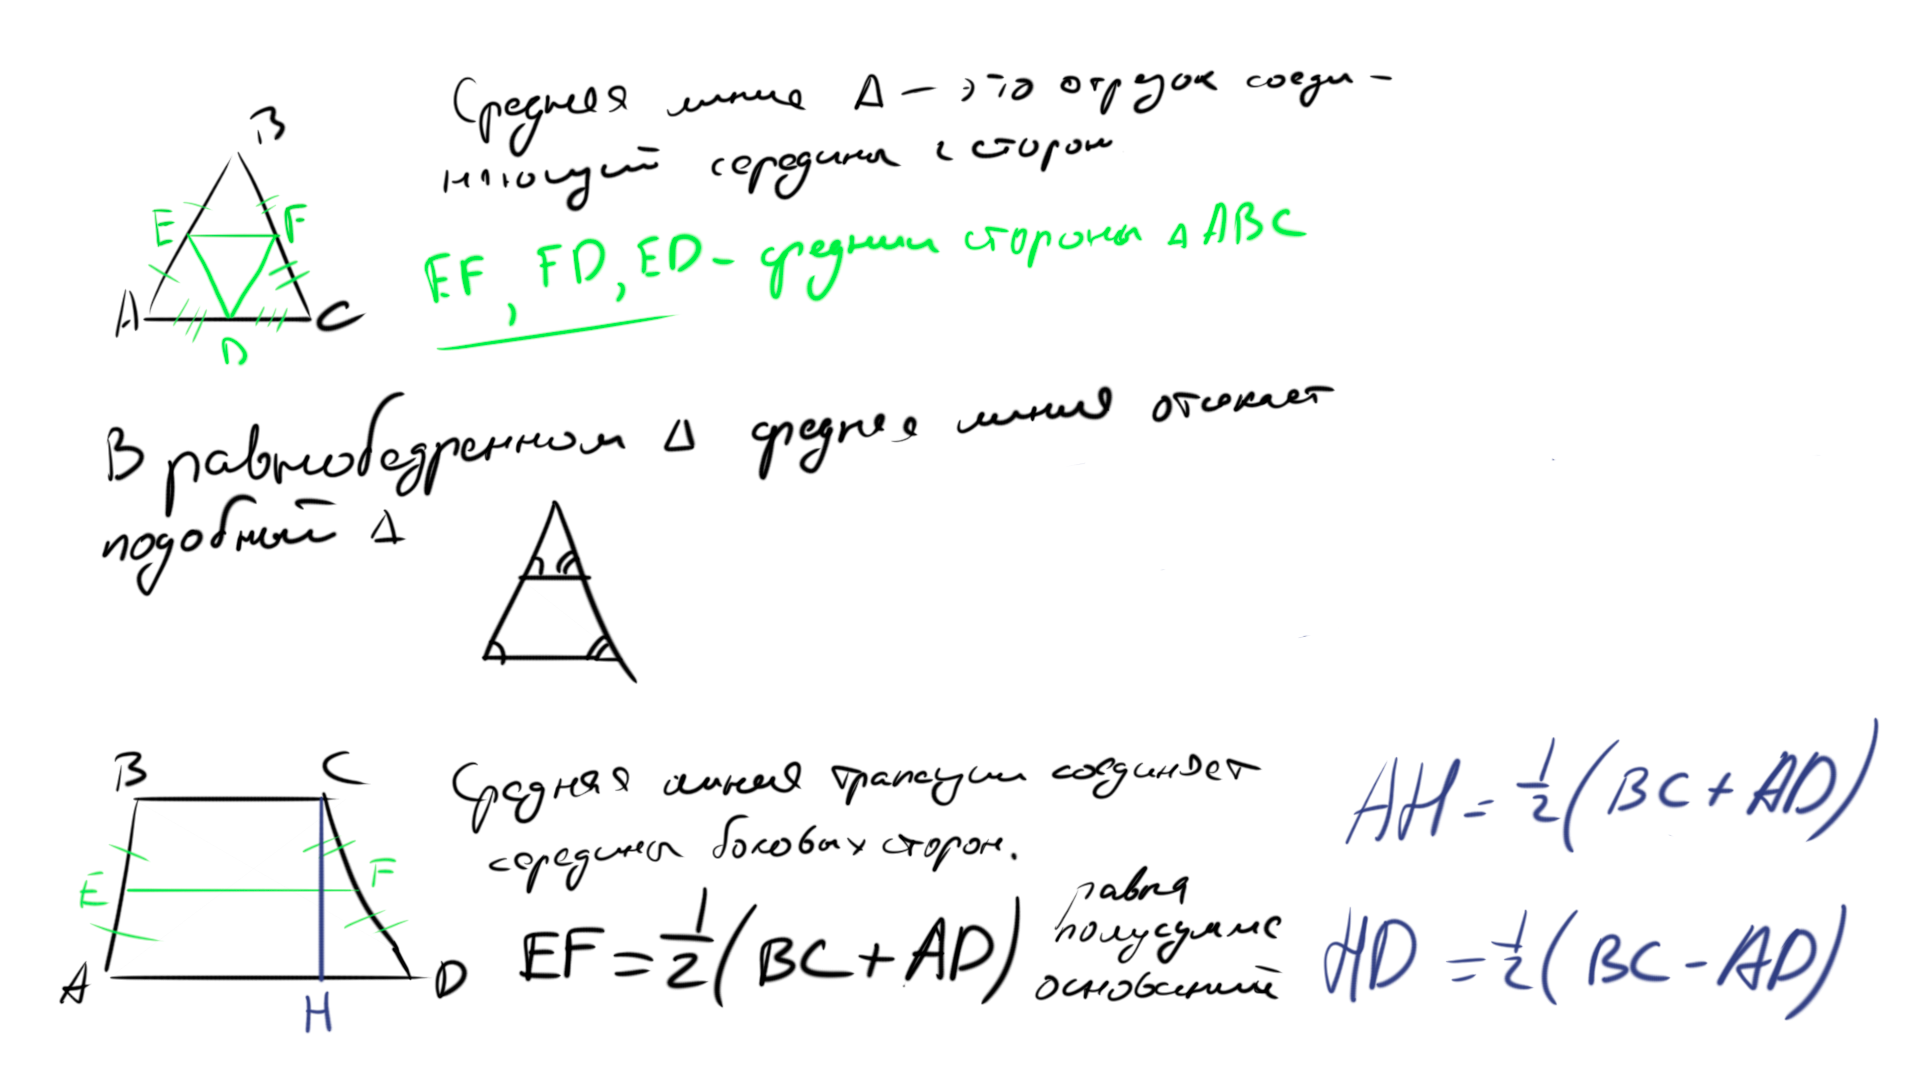 B
Средняя линия Δ – это отрезок соеди-
няющий середины 2 сторон
E F
A C
D
EF, FD, ED – средния стороны Δ ABC
В равнобедренном Δ средняя линия отсекает
подобный Δ
B C
E F
A D
H
Средняя линия трапеции соединяет
середины боковых сторон.
EF = 1/2 (BC + AD)
равна
полусумме
оснований
AH = 1/2 (BC + AD)
HD = 1/2 (BC - AD)